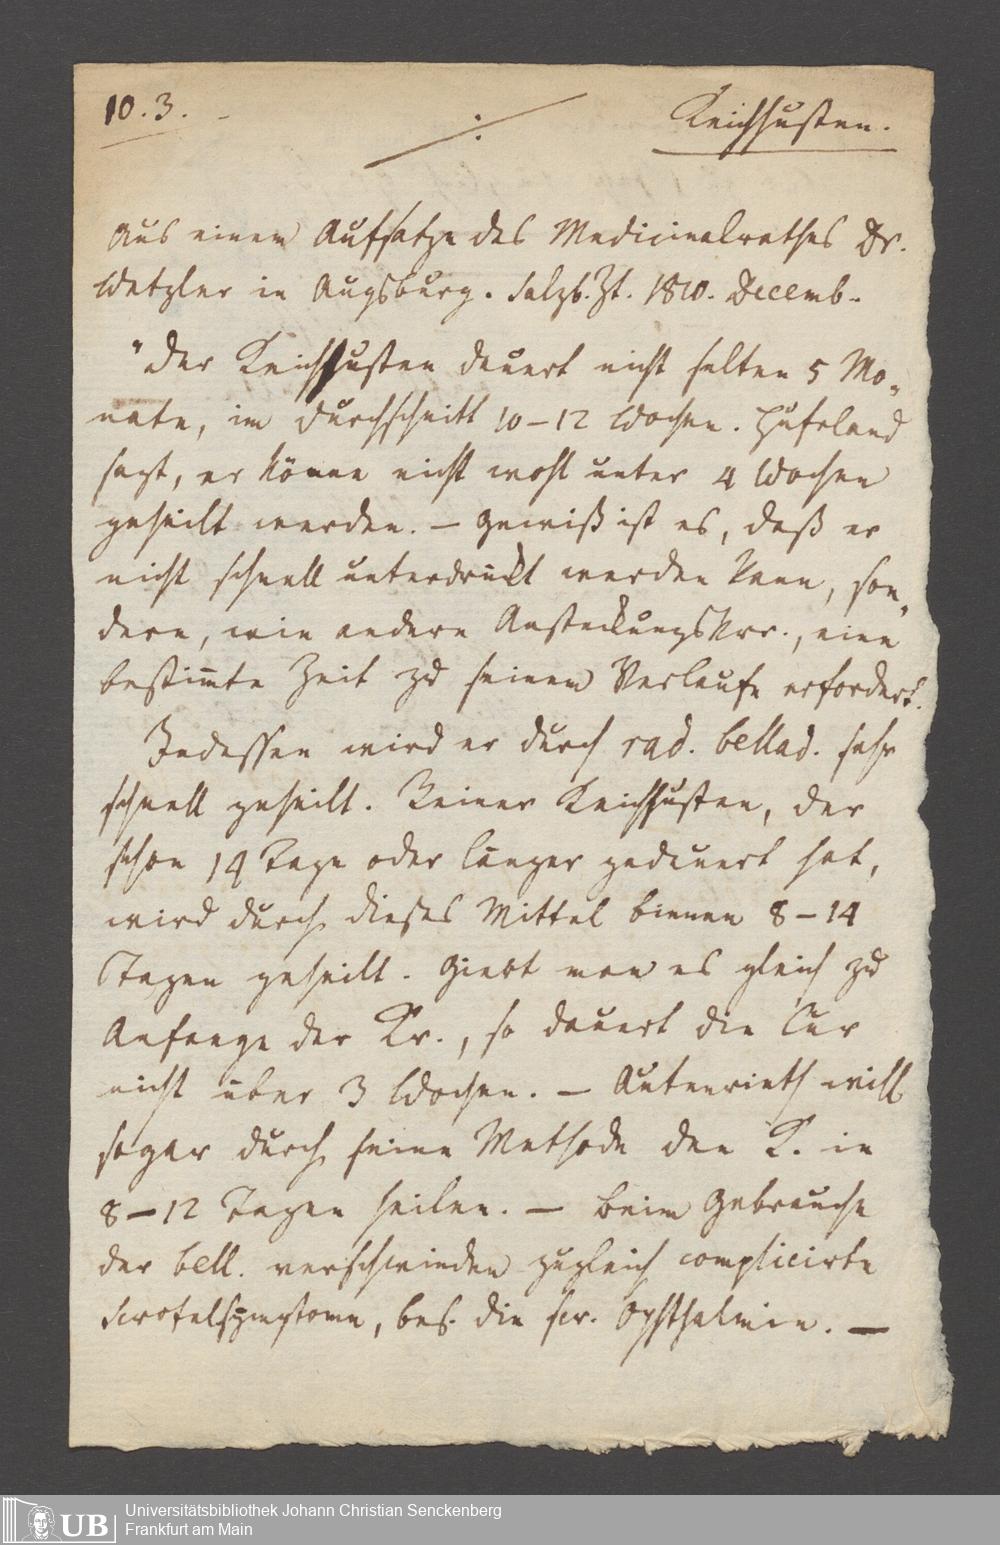 10.3. ⁒ Keichhusten.
Aus einem Aufsatze des Medicinalrathes Dr.
Wetzler in Augsburg. Salzb. Zt. 1810. Decemb.
"Der Keichhusten dauert nicht selten 5 Mo-
nate, im Durchschnitt 10-12 Wochen. Hufeland
sagt, er könne nicht wohl unter 4 Wochen
geheilt werden. — Gewiß ist es, daß er
nicht schnell unterdrückt werden kann, son-
dern, wie andere Ansteckungskrr., eine
bestim̅te Zeit zu seinem Verlaufe erfordert.
Indessen wird er durch rad. bellad. sehr
schnell geheilt. Keiner Keichhusten, der
schon 14 Tage oder länger gedauert hat,
wird durch dieses Mittel binnen 8-14
Tagen geheilt. Giebt man es gleich zu
Anfange der Kr., so dauert die Cur
nicht über 3 Wochen. — Autenrieth will
sogar durch seine Methode den K. in
8-12 Tagen heilen. — Beim Gebrauche
der bell. verschwinden zugleich complicirte
Scrofelsymptome, bes. die scr. Ophthalmie. —
Universitätsbibliothek Johann Christian Senckenberg
Frankfurt am Main
UB